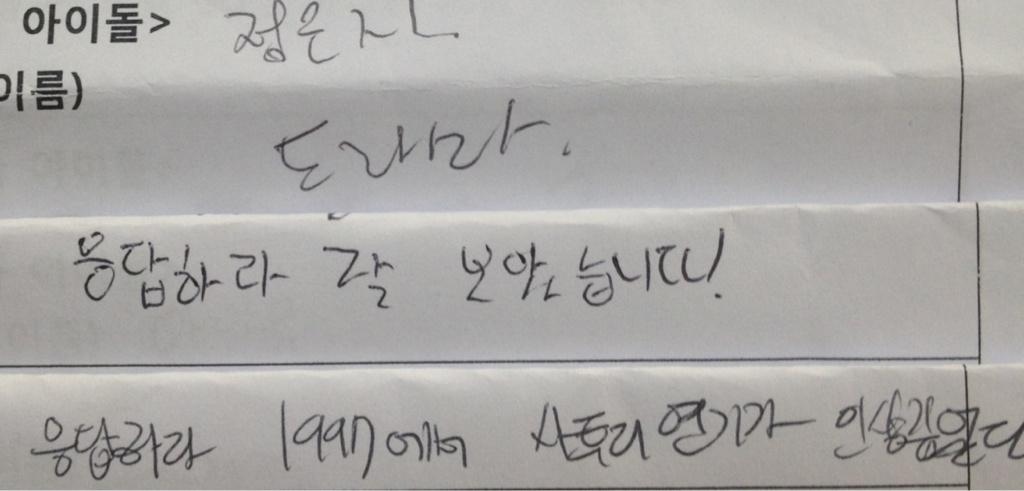 아이돌> 정은지
이름)
드라마.
응답하라 잘 보았습니다!
응답하라 1997에서 사투리 연기가 인상깊었다